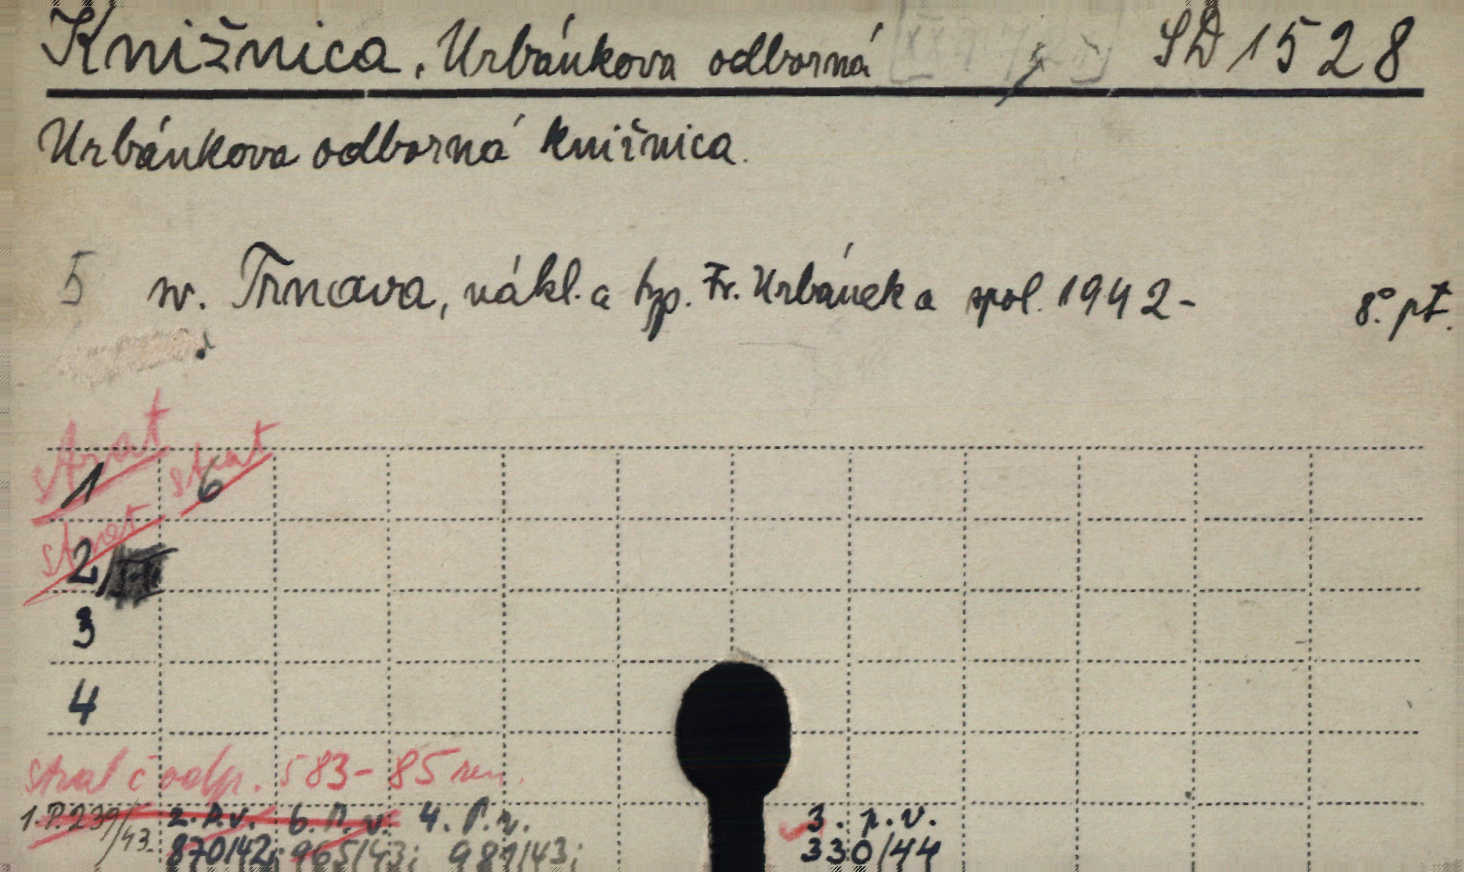 Knižnica, Urbánkova odborná SD 1528
Urbánkova odborná knižnica.
5 sv. Trnava, nákl. a typ. Fr. Urbánek a spol. 1942- 8°. pt.
strat strat
1 6
strat
2/
3
4
strat č odp. 583-85
1. P. 239/43. 2. P.v. 6. P.v. 4. P.v. 3. p.v.
870/42; 965/43; 981/43; 330/44